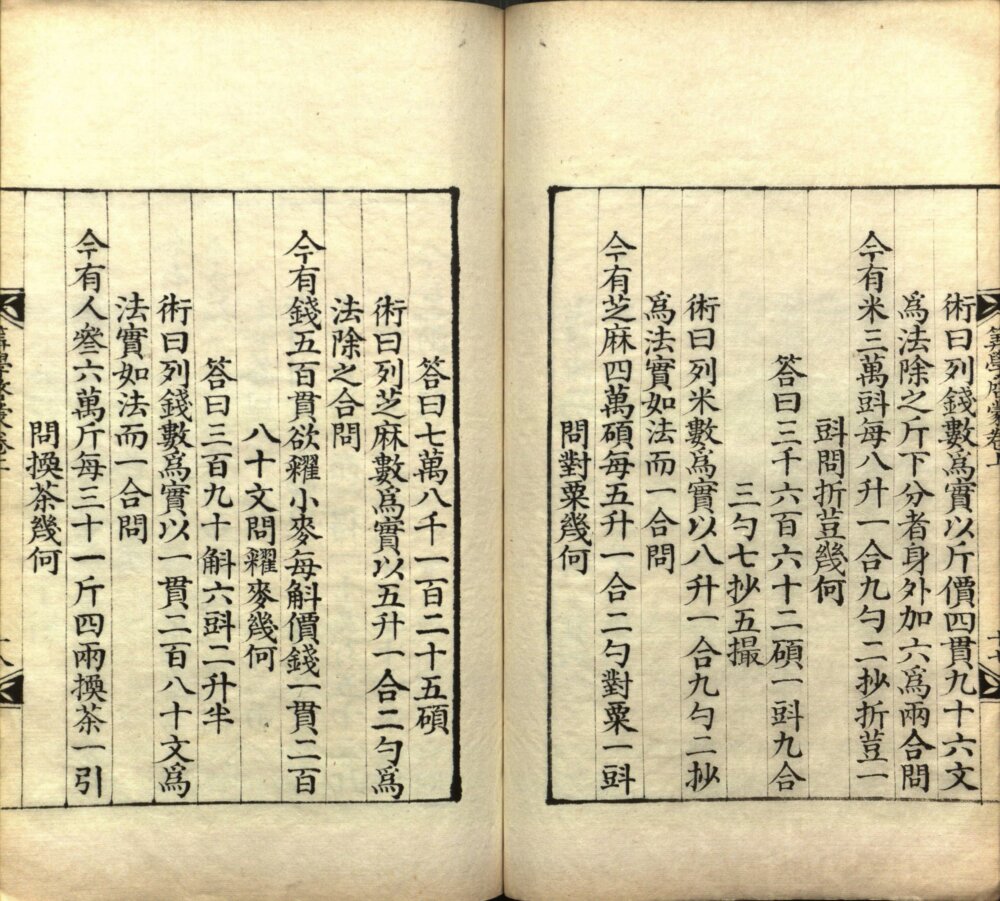 術曰列錢數爲實以斤價四貫九十六文
爲法除之斤下分者身外加六爲兩合問
今有米三萬㪷每八升一合九勺二抄折荳一
㪷問折荳幾何
答曰三千六百六十二碩一㪷九合
三勺七抄五撮
術曰列米數爲實以八升一合九勺二抄
爲法實如法而一合問
今有芝麻四萬碩每五升一合二勺對粟一㪷
問對粟幾何
答曰七萬八千一百二十五碩
術曰列芝麻數爲實以五升一合二勺爲
法除之合問
今有錢五百貫欲糴小麥每斛價錢一貫二百
八十文問糴麥幾何
答曰三百九十斛六㪷二升半
術曰列錢數爲實以一貫二百八十文爲
法實如法而一合問
今有人參六萬斤每三十一斤四兩換茶一引
問換茶幾何